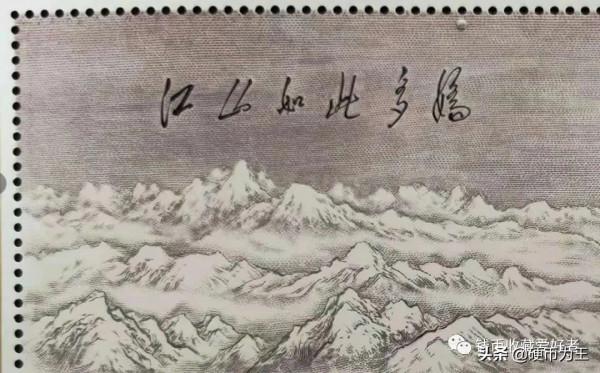 江山如此多娇
钱币收藏爱好者
头条 @硬币为王